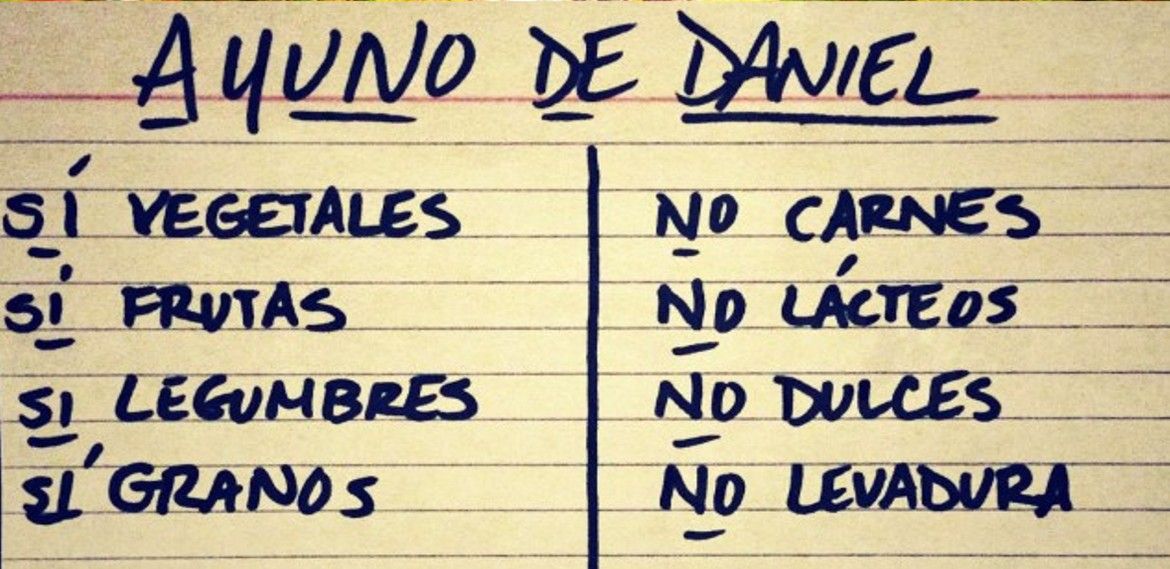 AYUNO DE DANIEL
SÍ VEGETALES
SÍ FRUTAS
SI LEGUMBRES
SÍ GRANOS
NO CARNES
NO LÁCTEOS
NO DULCES
NO LEVADURA